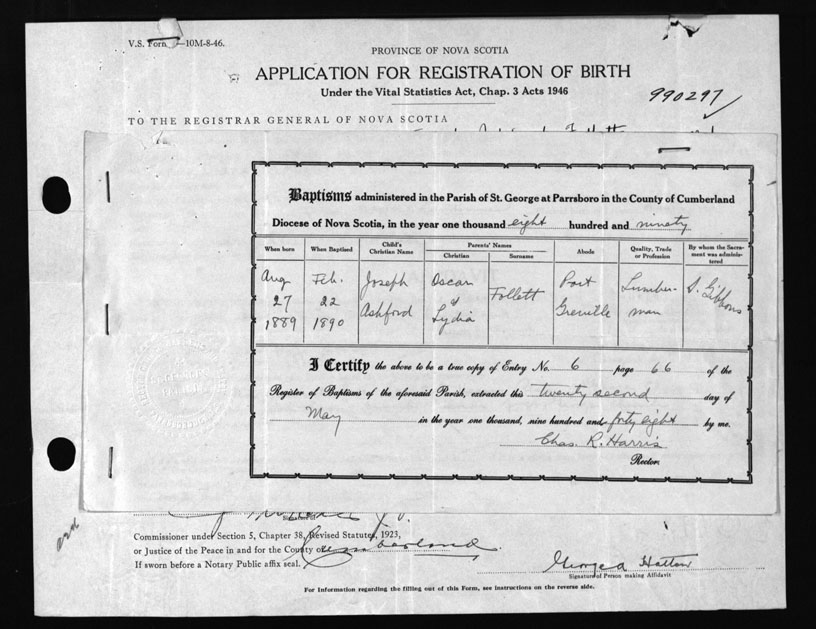 V.S. Form —10M-8-46.
PROVINCE OF NOVA SCOTIA
APPLICATION FOR REGISTRATION OF BIRTH
Under the Vital Statistics Act, Chap. 3 Acts 1946
990297
TO THE REGISTRAR GENERAL OF NOVA SCOTIA
Baptisms administered in the Parish of St. George at Parrsboro in the County of Cumberland
Diocese of Nova Scotia, in the year one thousand eight hundred and ninety
When born When Baptised Child's Christian Name Parents' Names Christian Surname Abode Quality, Trade or Profession By whom the Sacrament was administered
Aug Feb. Joseph Oscar Port Lumber-
27 22 & Follett S. Gibbons
1889 1890 Ashford Lydia Greville man
I Certify the above to be a true copy of Entry No. 6 page 66 of the
Register of Baptisms of the aforesaid Parish, extracted this twenty second day of
May in the year one thousand, nine hundred and forty eight by me.
Chas. R. Harris
Rector.
Commissioner under Section 5, Chapter 38, Revised Statutes, 1923,
or Justice of the Peace in and for the County of Cumberland.
If sworn before a Notary Public affix seal.
George A Hatton
Signature of Person making Affidavit
For Information regarding the filling out of this Form, see instructions on the reverse side.